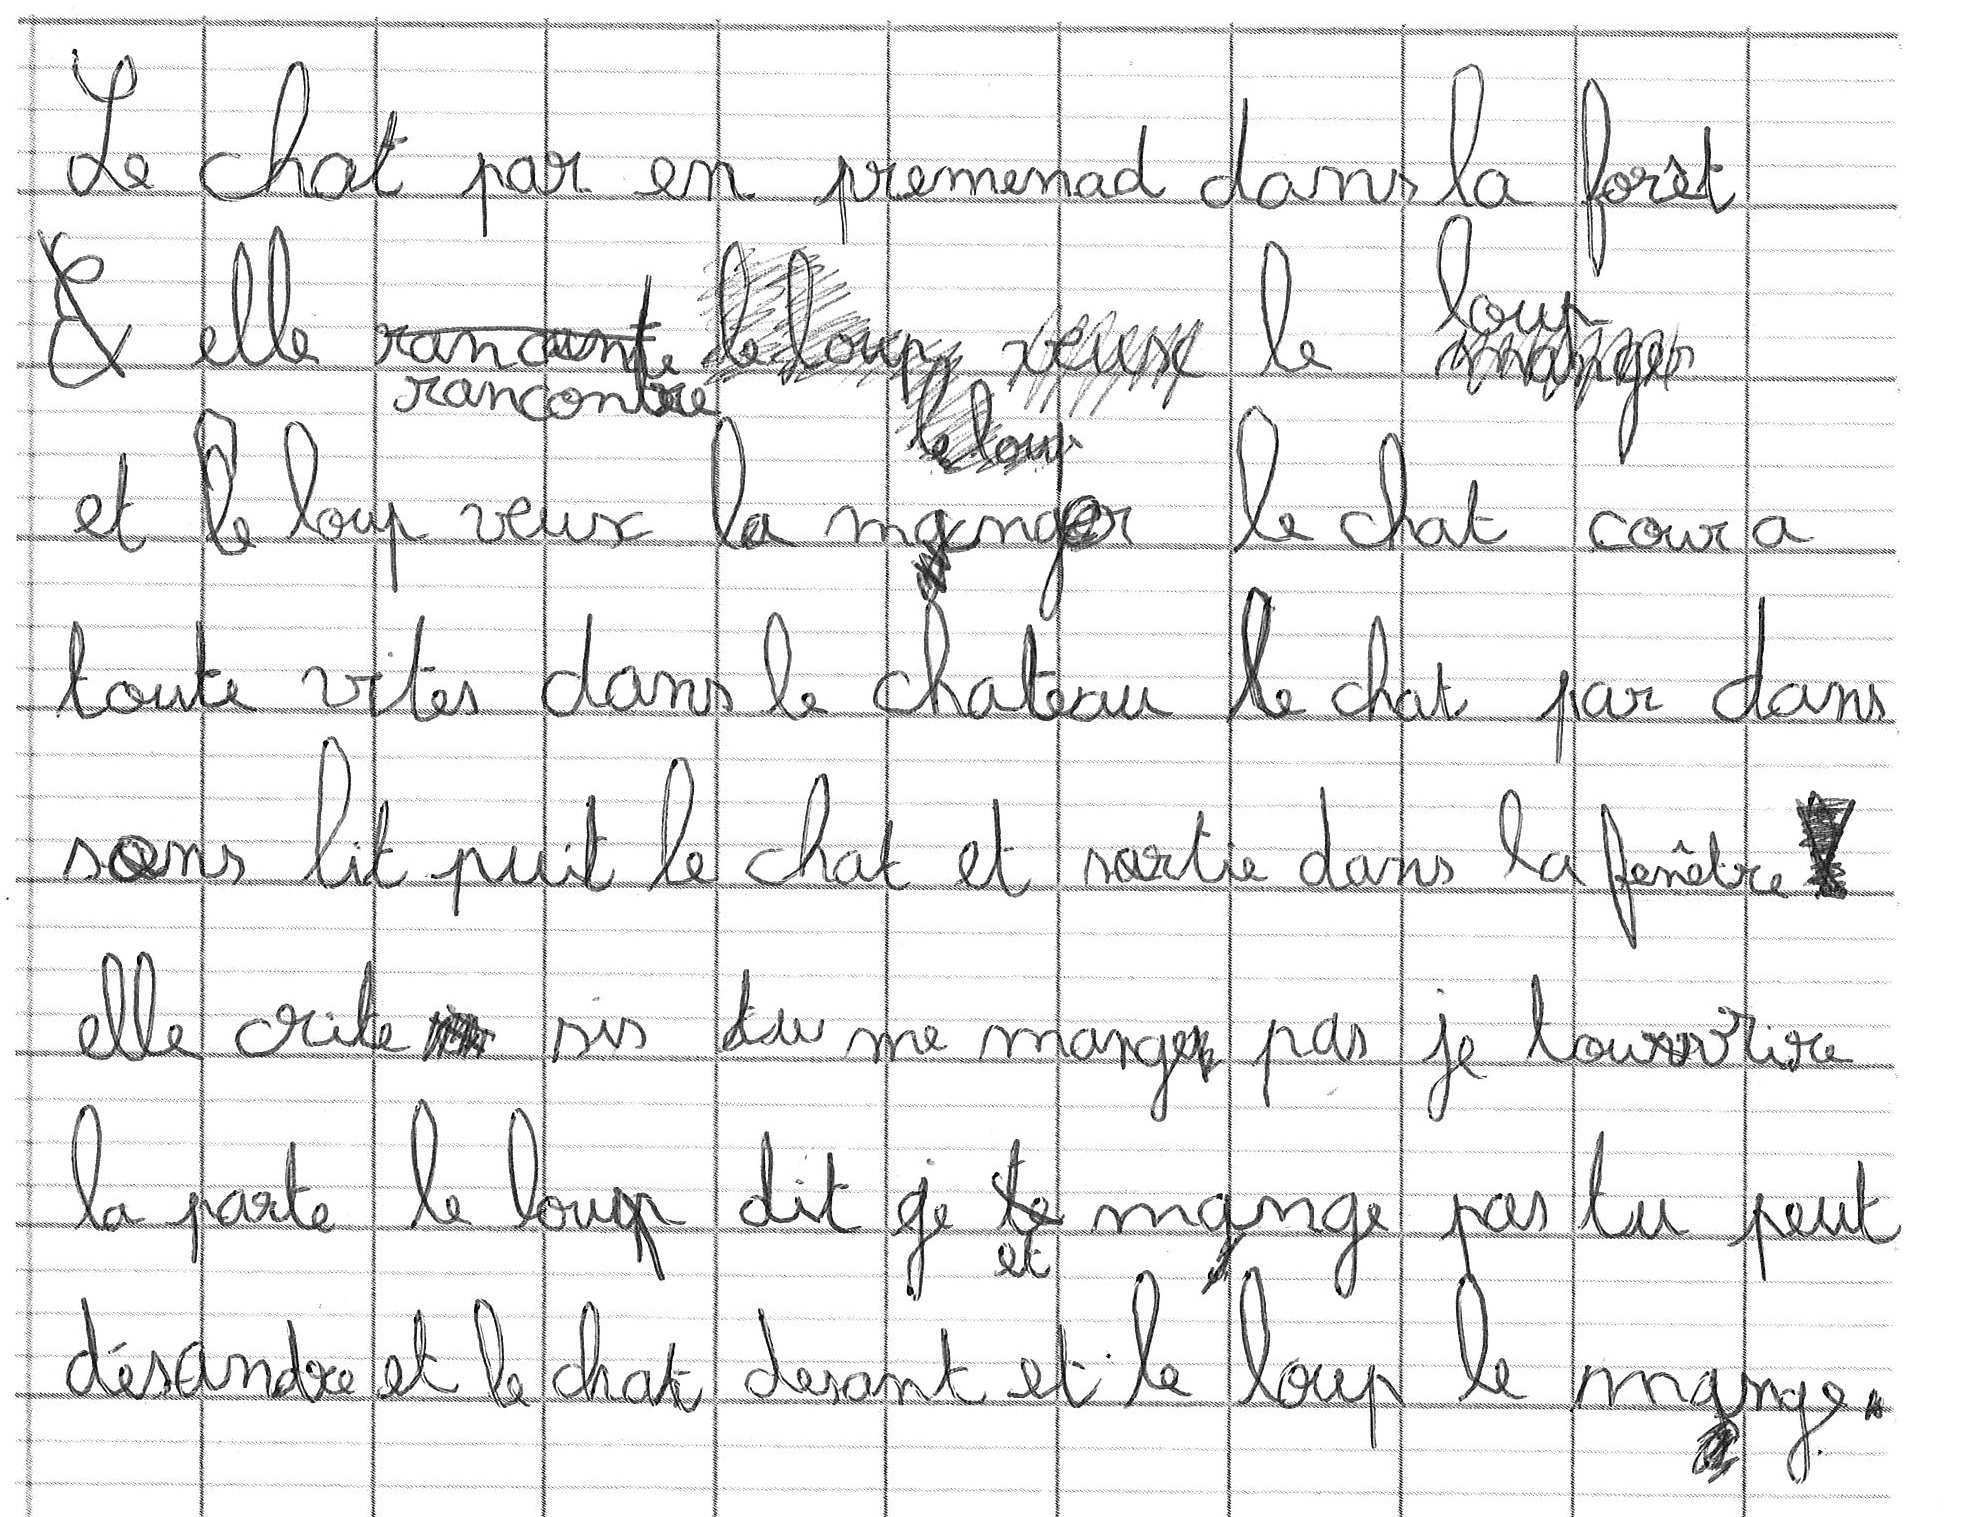 Le chat par en premenad dans la forêt
& elle rancontre le loup
et le loup veux la manger le chat coura
toute vites dans le chateau le chat par dans
sons lit puit le chat et sortie dans la fenêtre
elle crite sis tu me mange pas je touvrire
la parte le loup dit je te mange pas tu peut
et
désandre et le chat desant et le loup le mange.